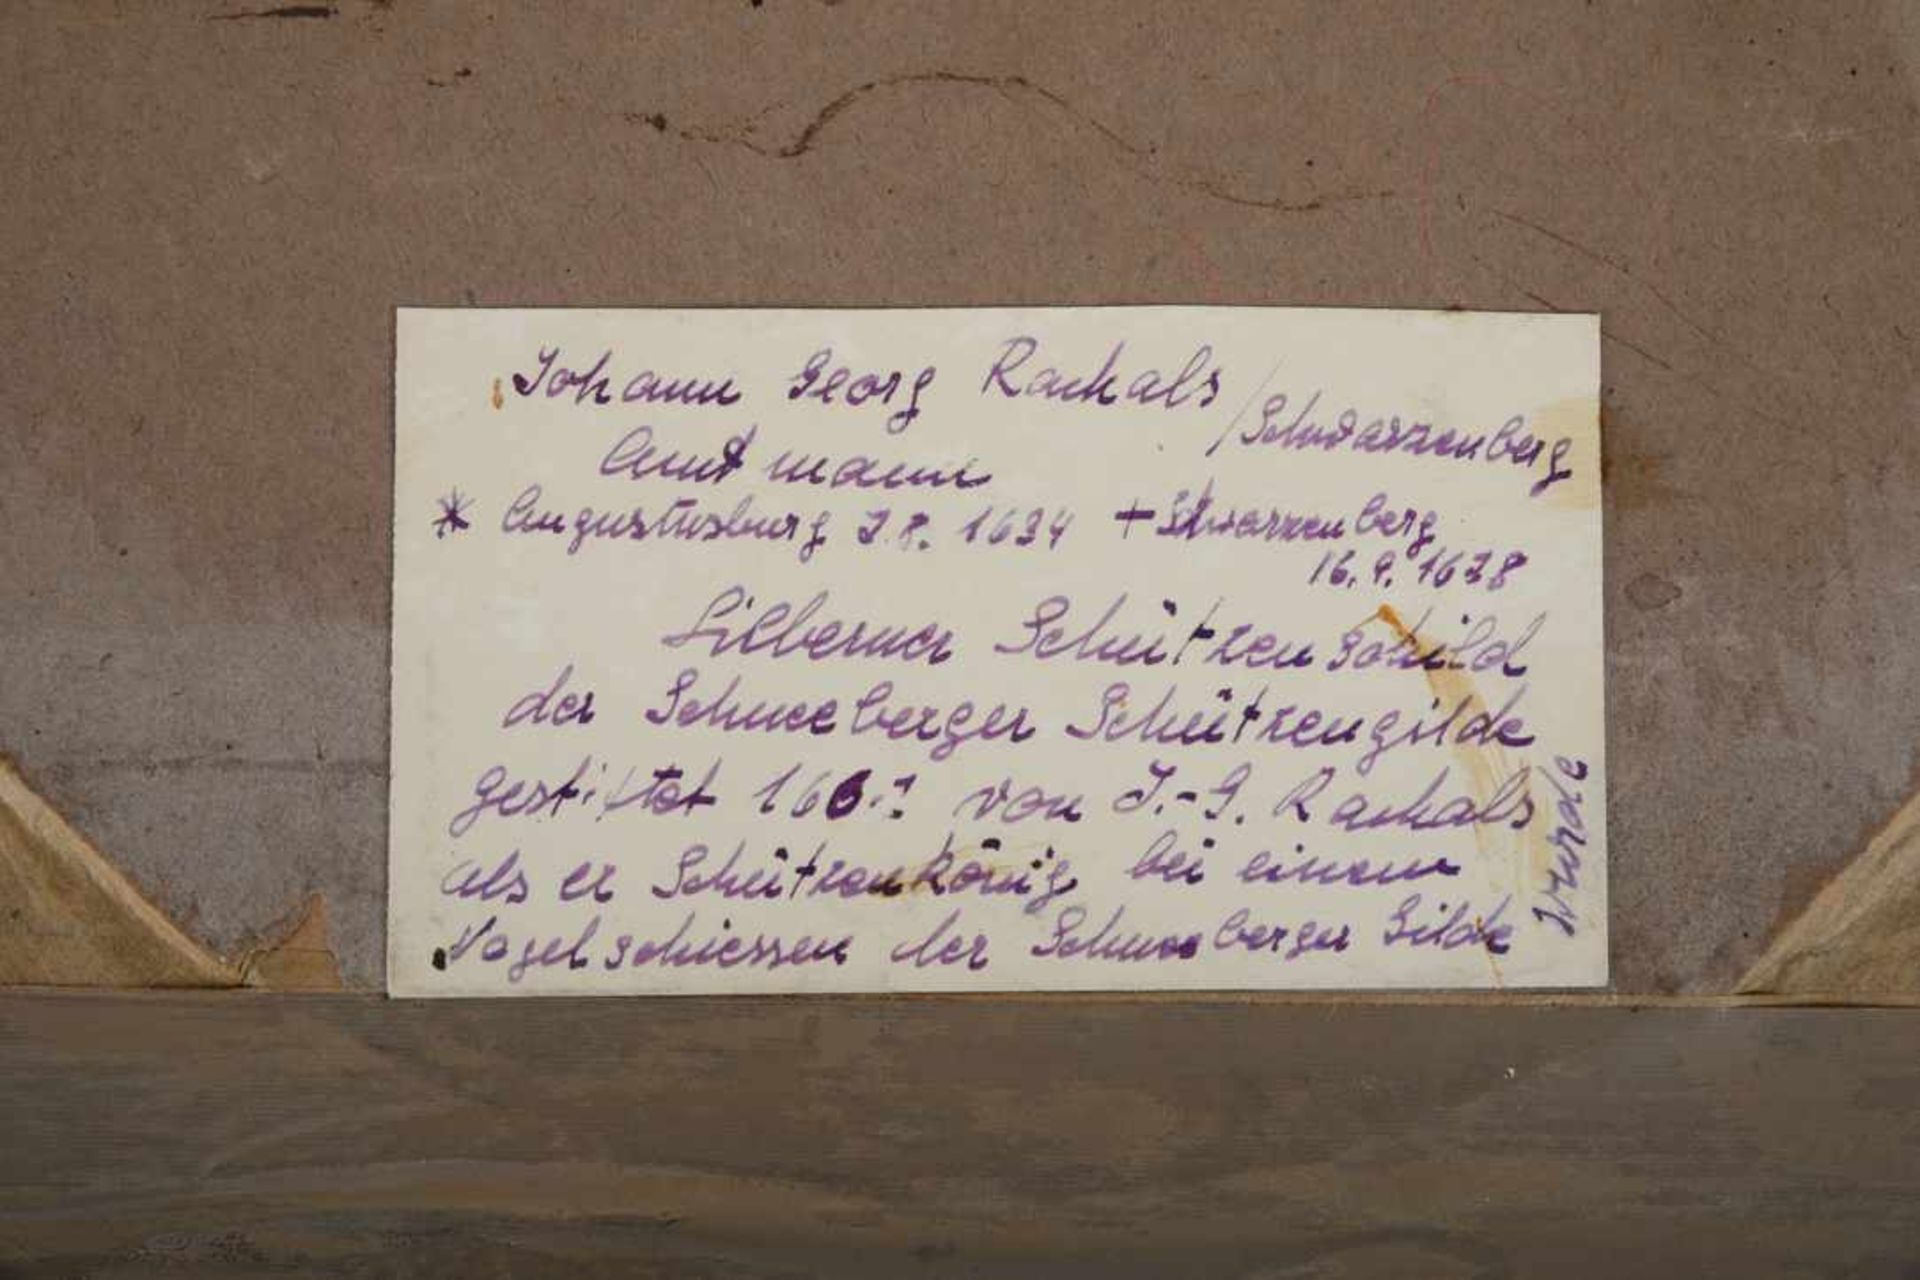 Johann Georg Rackals
/Schwarzenberg
Amtmann
* Augustusburg 7.8. 1634 + Schwarzenberg
16.9. 1678
Silberner Schützenschild
der Schneeberger Schützengilde
gestiftet 166.? von J.-G. Rackals
als er Schützenkönig bei einem
Vogelschiessen der Schneeberger Gilde
wurde